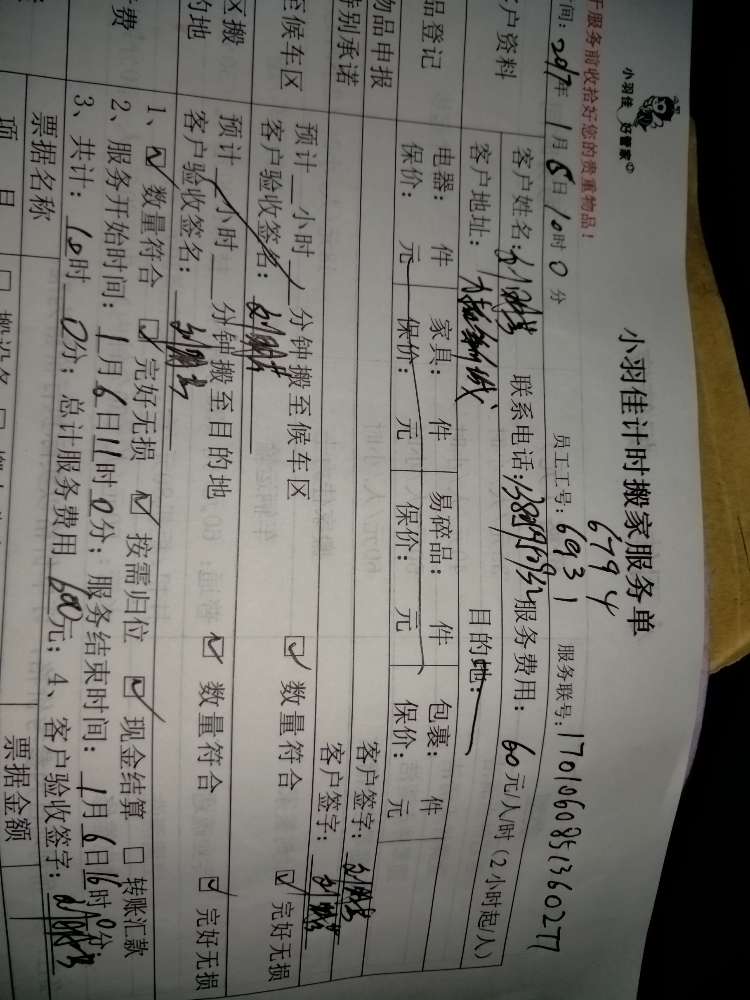 小羽佳 好管家
于服务前收拾好您的贵重物品！
小羽佳计时搬家服务单
6794
间：2017年1月6日10时0分 员工工号：6931 服务联号：1701060851360277
户资料
客户姓名： 联系电话： 服务费用：60元/人/时（2小时起/人）
客户地址： 目的地：
品登记
电器： 件 家具： 件 易碎品： 件 包裹： 件
保价： 元 保价： 元 保价： 元 保价： 元
物品申报
客户签字：
特别承诺
客户签字：
至候车区
预计 小时 分钟搬至候车区 数量符合 完好无损
客户验收签名：
区搬
的地
预计 小时 分钟搬至目的地 数量符合 完好无损
客户验收签名：
费
1、 数量符合 完好无损 按需归位 现金结算 转账汇款
2、服务开始时间：1月6日11时0分；服务结束时间：1月6日16时0分；
3、共计：10时0分；总计服务费用600元；4、客户验收签字：
票据名称 票据金额
项 目